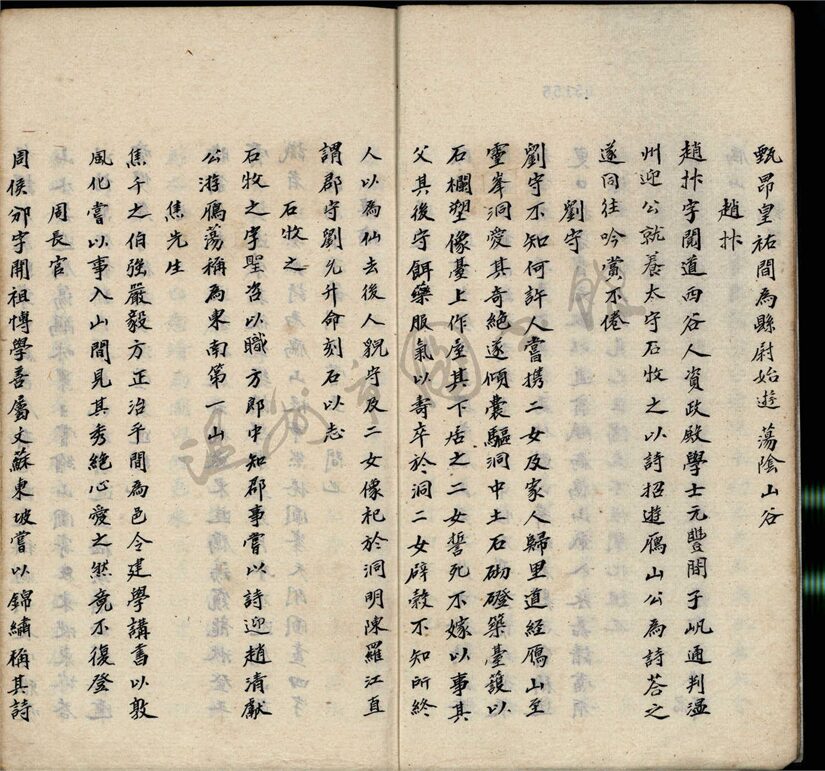 甄昂皇祐間為縣尉始遊蕩陰山谷
趙抃
趙抃字閱道西谷人資政殿學士元豐間子㞦通判溫
州迎公就養太守石牧之以詩招遊鴈山公為詩荅之
遂同往吟賞不倦
劉守
劉守不知何許人嘗携二女及家人歸里道經鴈山至
靈峯洞愛其奇絕遂傾囊驅洞中土石砌磴築臺護以
石欄塑像臺上作屋其下居之二女誓死不嫁以事其
父其後守餌藥服氣以壽卒於洞二女辟穀不知所終
人以為仙去後人貌守及二女像祀於洞明陳羅江直
謂郡守劉允升命刻石以志
石牧之
石牧之字聖咨以職方郎中知郡事嘗以詩迎趙清獻
公游鴈蕩稱為東南第一山
焦先生
焦千之伯強嚴毅方正治平間為邑令建學講書以敦
風化嘗以事入山間見其秀絕心愛之然竟不復登
周長官
周侯邠字開祖博學善屬文蘇東坡嘗以錦繡稱其詩
溫州市圖書館